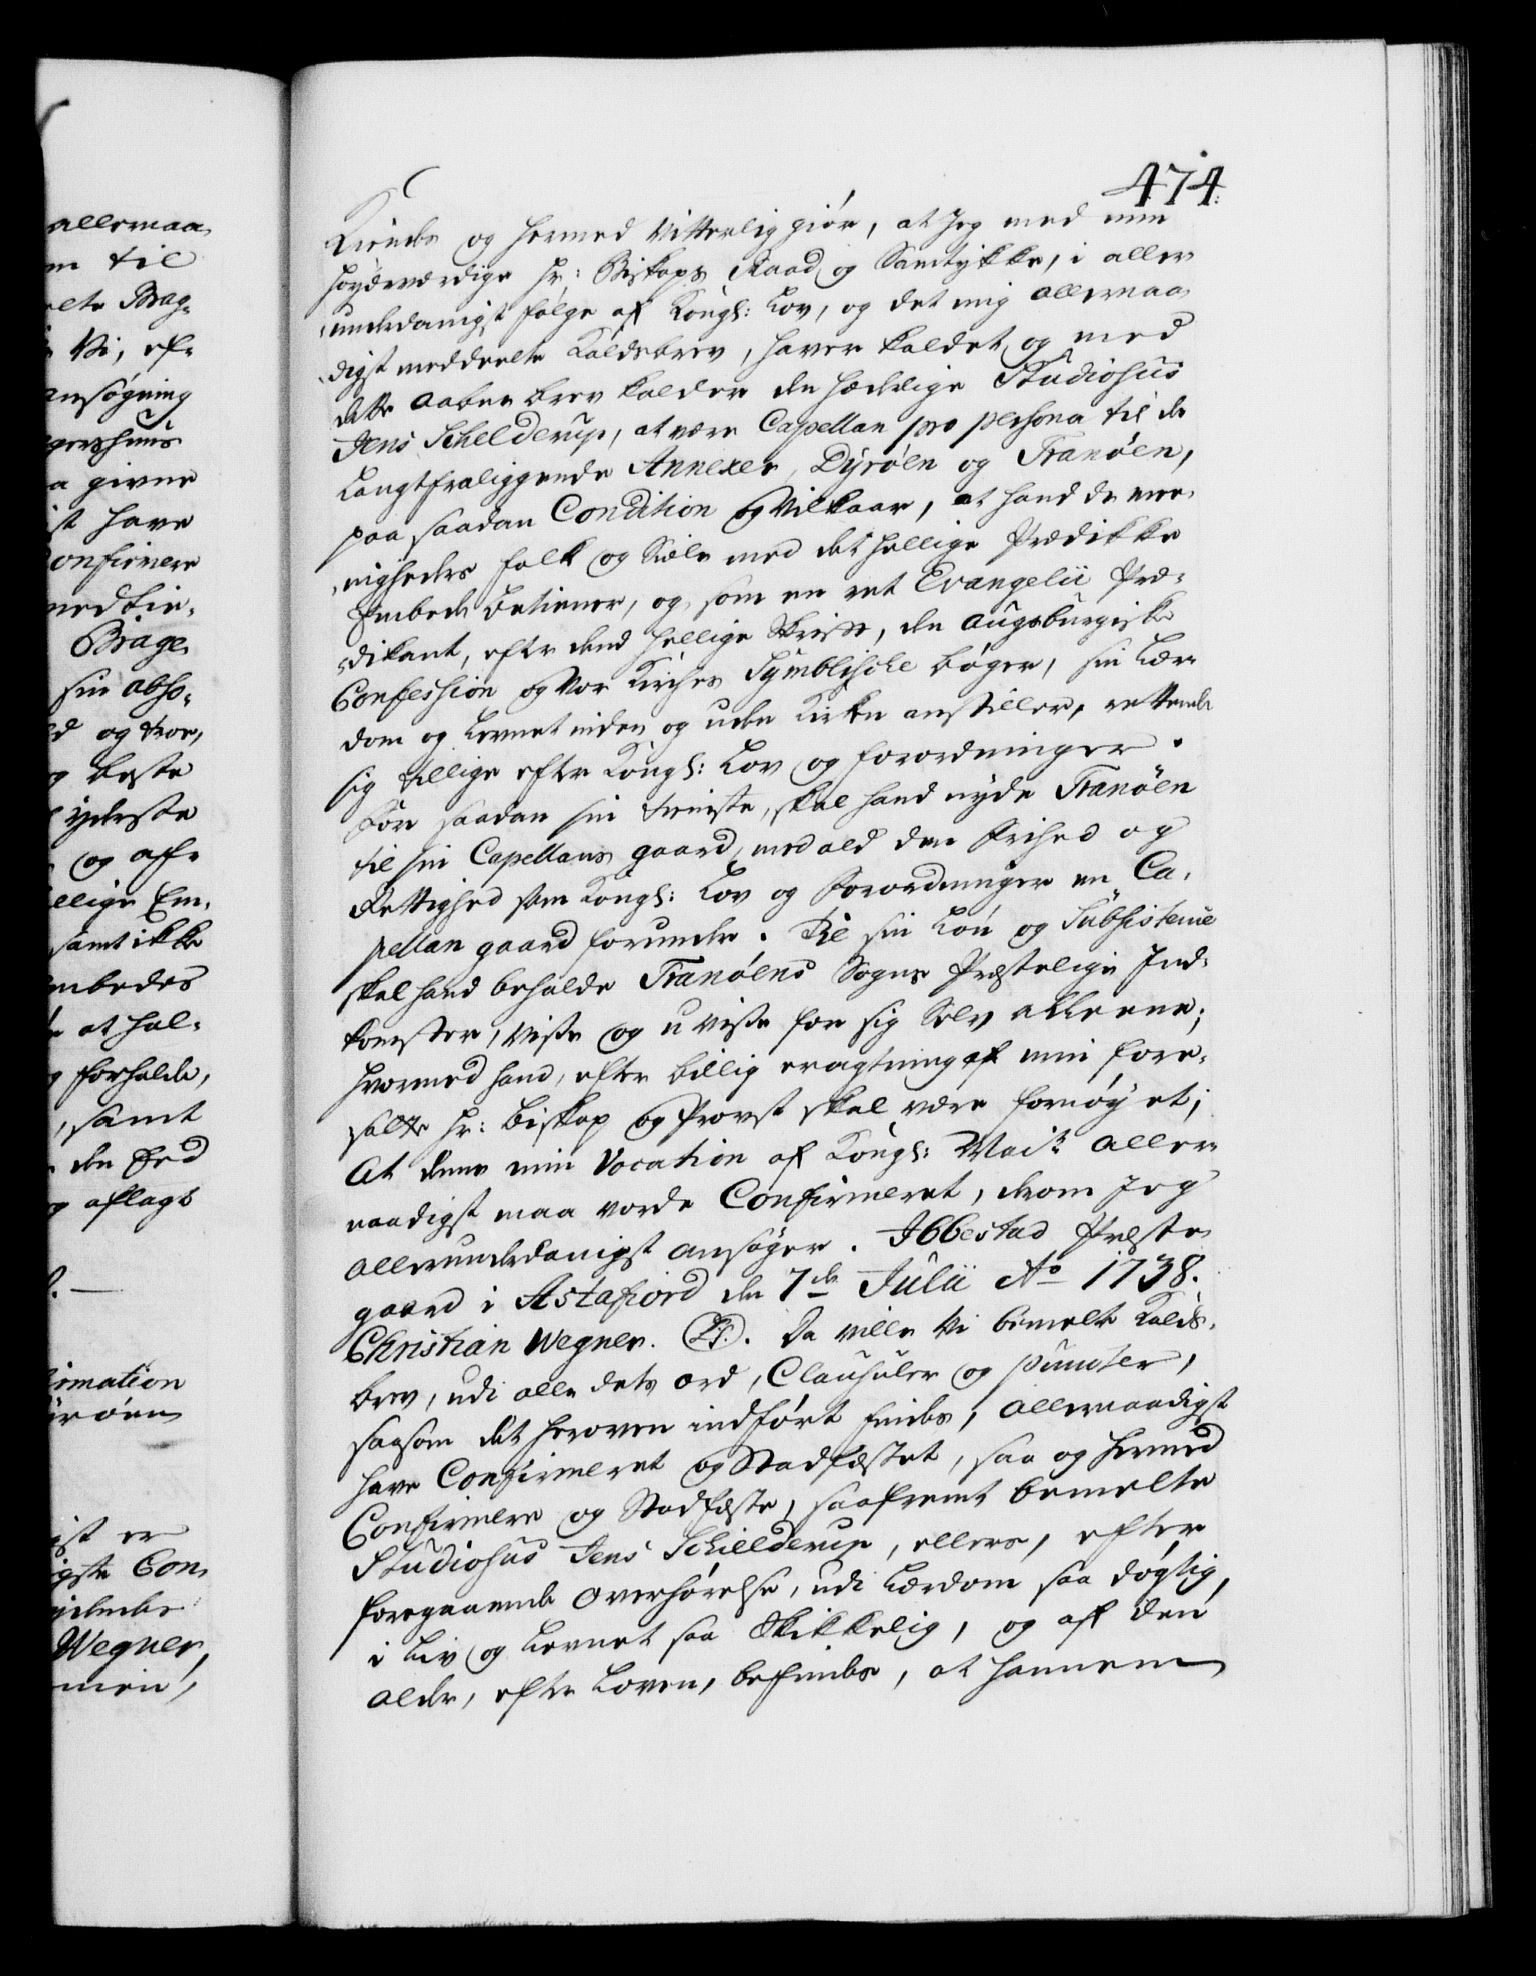 474.
Kiendes og hermed Vitterlig giör, at Jeg med min
höyærværdige Hr: Biskops Raad og Samtykke, i aller
underdanigst følge af Kongl: Lov, og det mig allernaa
digst meddeelte Kaldsbrev, haver kaldet og med
dette aabne brev kalder den hæderlige Studiosus
Jens Schelderup, at være Capellan pro persona til de
Langtfraliggende Annexer, Dyröen og Tranöen,
paa saadan Condition og Vilkaar, at hand de me¬
nigheders folk og Siele med det hellige Prædikke
Embede betiener, og som en ret Evangelii Præ¬
dikant, efter dend hellige Skrift, den Augsburgiske
Confession og Vor Kirches Symbolische bøger, sin Lær¬
dom og Levnet inden og uden Kirken anstiller, rettende
sig tillige efter Kongl: Lov og forordninger.
For saadan sin tieniste, skal hand nyde Tranöen
til sin Capellans gaard, med ald den Frihed og
Rettighed som Kongl: Lov og Forordninger en Ca¬
pellan gaard forunder. Til sin Lön og Subsistence
skal hand beholde Tranöens Sogns Præstelige Ind¬
komster, visse og uvisse for sig Selv alleene;
hvormed hand, efter billig eragtning af min fore¬
satte Hr: Biskop og Provst skal være fornöyet;
At denne min Vocation af Kongl: Mait: aller
naadigst maa vorde Confirmeret, derom Jeg
allerunderdanigst ansøger. Ibbestad Præste
gaard i Astafiord den 7de Julii Ao 1738.
Christian Wegner. (LS). Da ville Vi bemelte Kalds¬
brev, udi alle dets ord, Clausuler og puncter,
saasom det heroven indført findes, allernaadigst
have Confirmeret og Stadfæstet, saa og hermed
Confirmere og Stadfæste, saafremt bemelte
Studiosus Jens Schielderup, ellers, efter
foregaaende overhørelse, udi Lærdom saa dögtig,
i Liv og Levnet saa Skikkelig, og af den
alder, efter Loven, befindes, at hannem
allernaa
m til
elte Brag¬
Vi, ef¬
ansøgning
gershuus
a givne
st have
Confirmere
med tie¬
Brage
sin abso¬
d og troe,
g beste
yderste
og aff
ellige Em¬
samt ikke
mbedes
at hol¬
g forholde,
samt
den Eed
g aflagt
firmation
yröen
gst er
igste Con
iendes
Wegner,
men,